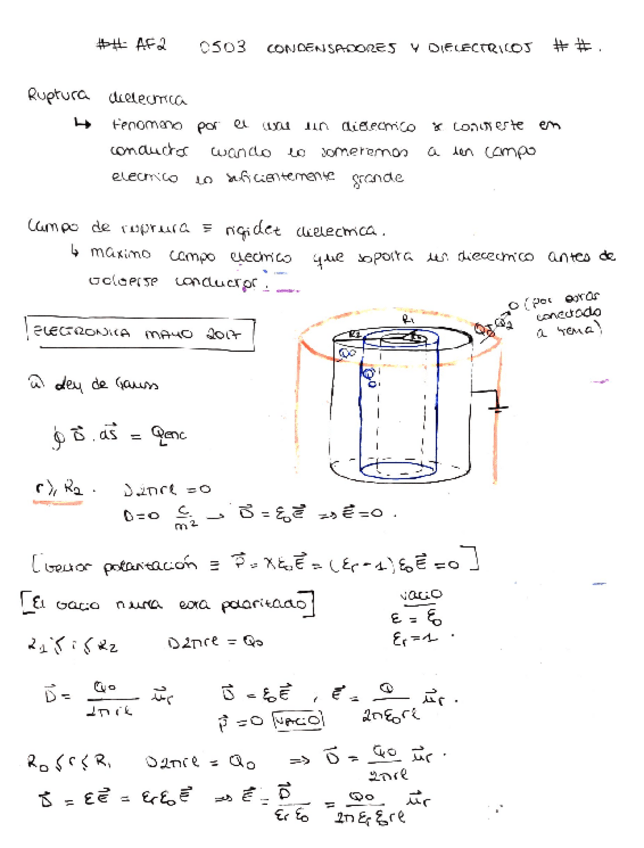 ## AF2 0503 CONDENSADORES Y DIELECTRICOS ##.
Ruptura dielectrica
↳ Fenomeno por el cual un dielectrico se convierte en
conductor cuando lo sometemos a un campo
electrico lo suficientemente grande
Campo de ruptura ≡ rigidez dielectrica.
↳ maximo campo electrico que soporta un dielectrico antes de
volverse conductor.
ELECTRONICA MAYO 2017
R1 R2 Q0 Q0
0 (por estar
conectado
a tierra)
a) Ley de Gauss
∮ D⃗ . ds⃗ = Qenc
r ≥ R2 . D2πrl = 0
D=0 C/m² → D⃗ = ε0E⃗ ⇒ E⃗ = 0 .
[Vector polarización ≡ P⃗ = χε0E⃗ = (εr-1)ε0E⃗ = 0]
[El vacio nunca esta polarizado]
vacio
ε = ε0
εr = 1 .
R1 ≤ r ≤ R2 D2πrl = Q0
D⃗ = Q0/2πrl u⃗r D⃗ = ε0E⃗ , E⃗ = Q/2πε0rl u⃗r .
P⃗ = 0 [VACIO]
R0 ≤ r ≤ R1 D2πrl = Q0 ⇒ D⃗ = Q0/2πrl u⃗r .
D⃗ = εE⃗ = εrε0E⃗ ⇒ E⃗ = D⃗/εrε0 = Q0/2πεrε0rl u⃗r